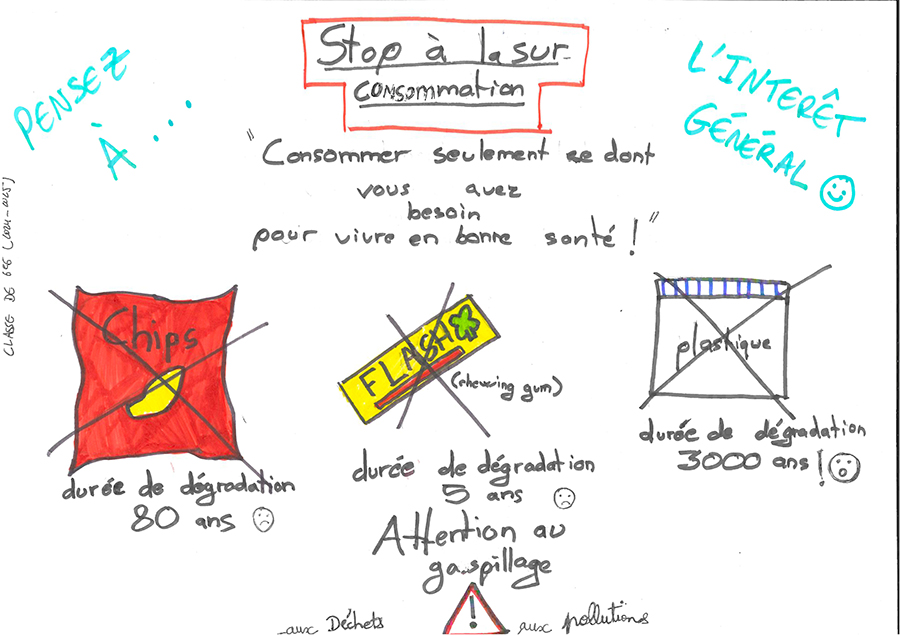 PENSEZ
À...
Stop à la sur-
consommation
L'INTERÊT
GÉNÉRAL
"Consommer seulement ce dont
vous avez
besoin
pour vivre en bonne santé !"
Chips
durée de dégradation
80 ans
FLASH
(chewing gum)
durée de dégradation
5 ans
plastique
durée de dégradation
3000 ans !
Attention au
gaspillage
aux Déchets
!
aux pollutions
CLASSE DE